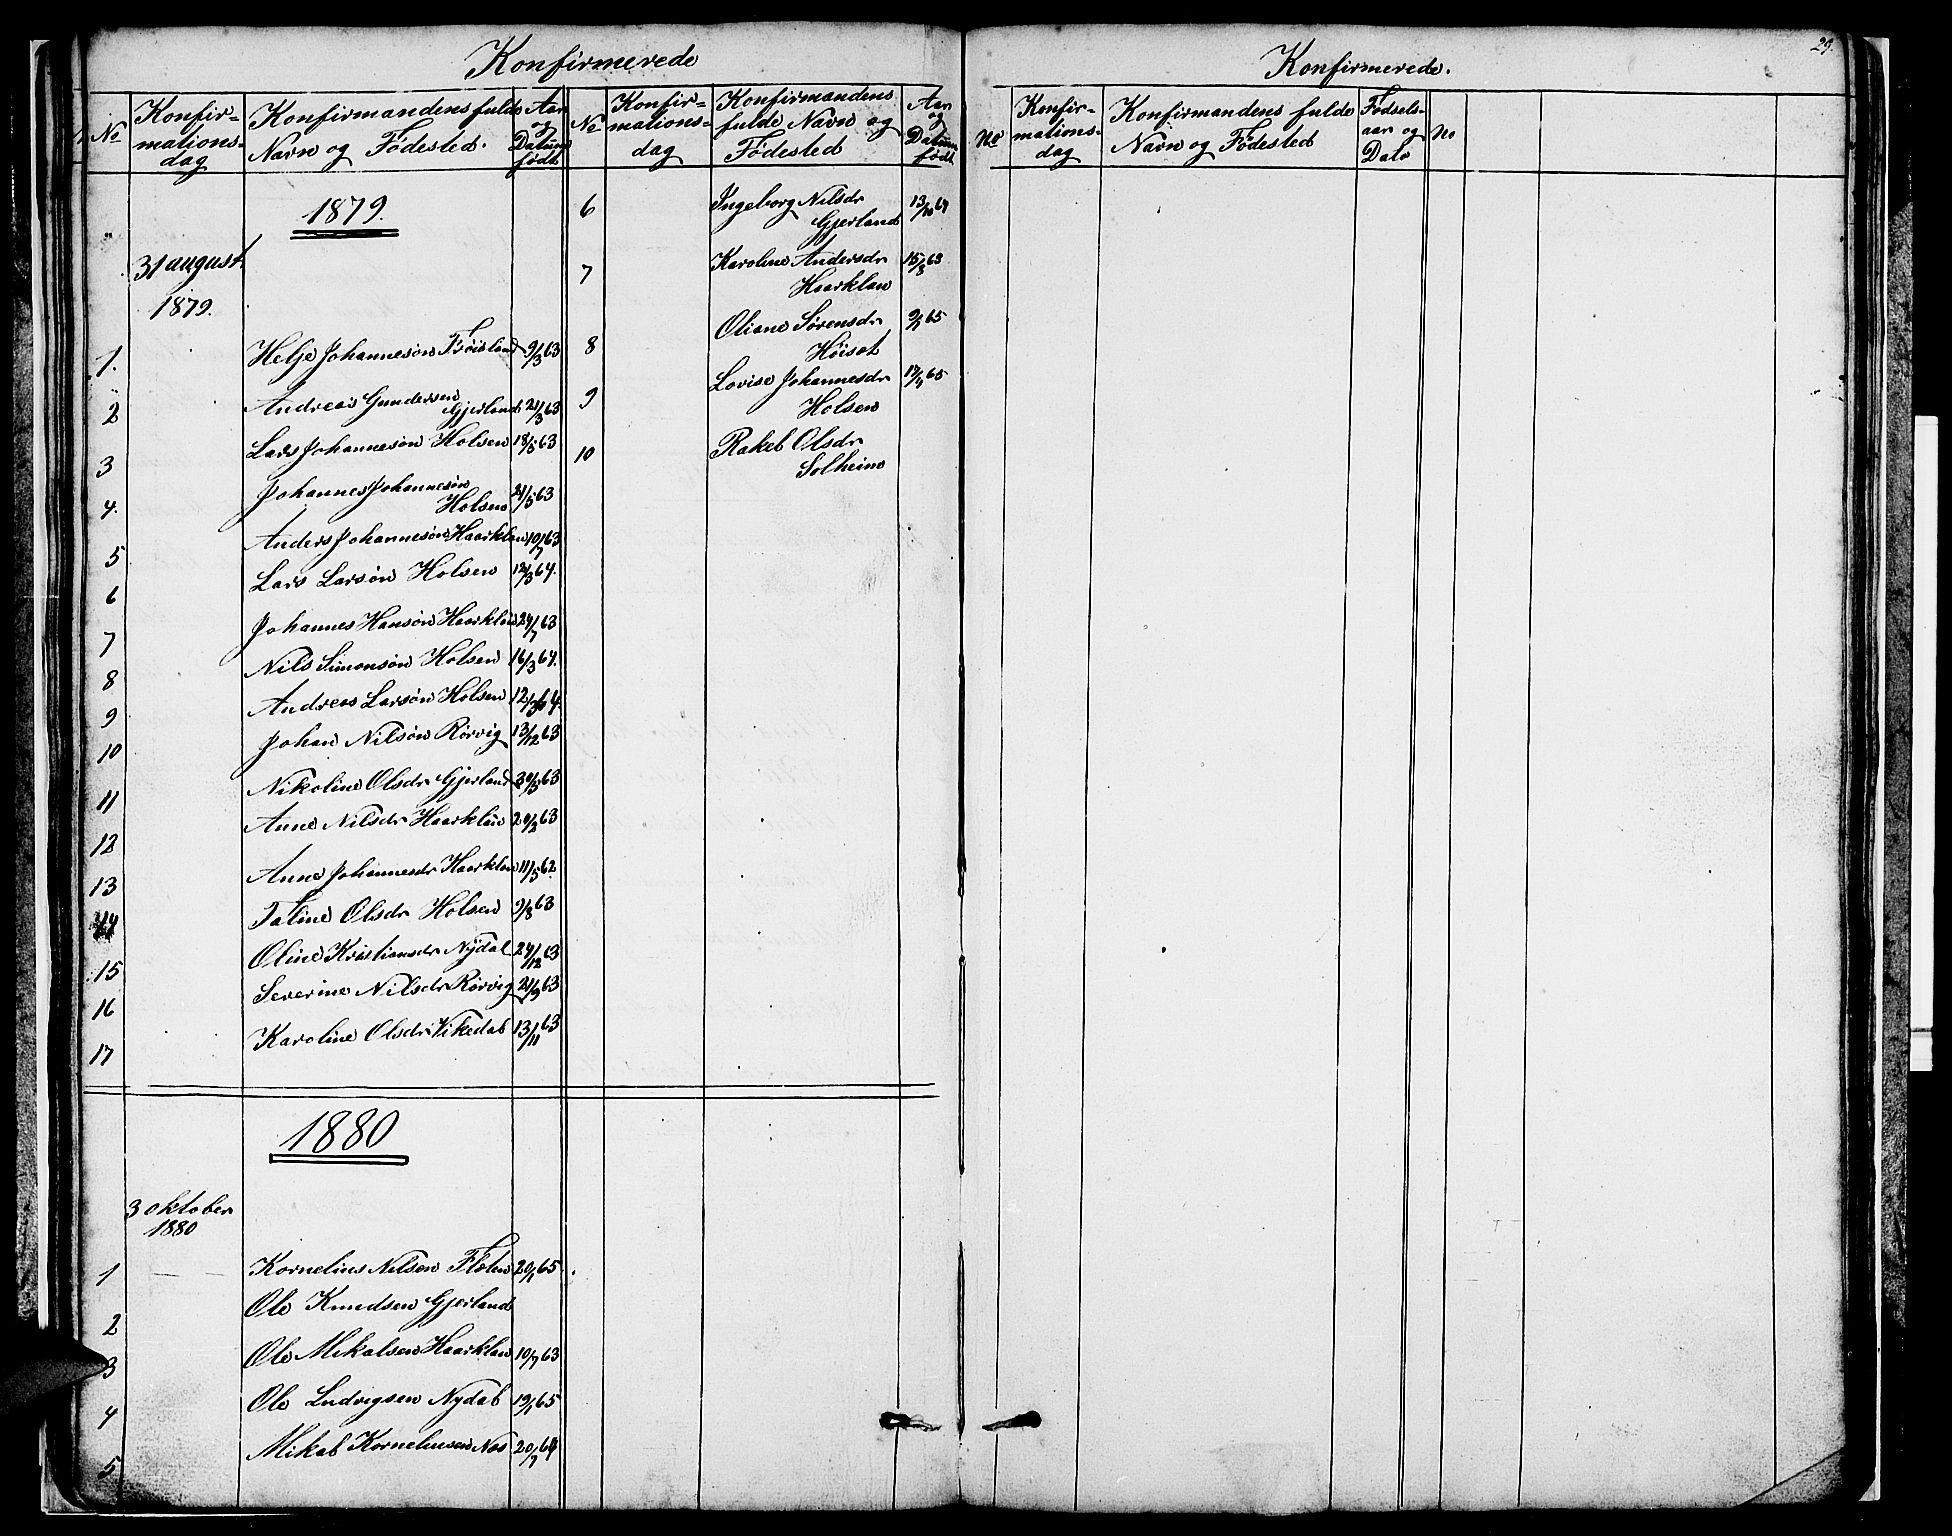 Konfirmerede
No
Konfir=
mations=
dag
Konfirmandens fulde
Navn og Fødested.
Aar
og
Datum
født
No
Konfir=
mations=
dag
Konfirmandens
fulde Navn og
Fødested
Aar
og
Datum
født
1879.
31 august
1879.
1. Helje Johannesøn Frøisland 9/3 63
2 Andreas Gundersen
Gjerland 21/3 63
3 Lars Johannesøn Holsen 18/5 63
4. Johannes Johannesøn
Holsen 21/5 63
5 Anders Johannesøn Haarklau 10/7 63
6 Lars Larsøn Holsen 12/3 64.
7 Johannes Hansøn Haarklau 24/7 63
8 Nils Simonsøn Holsen 16/3 64.
9 Andreas Larsøn Holsen 12/3 64.
10 Johan Nilsøn Rørvig 13/12 63
11 Nikoline Olsdr Gjerland 30/5 63
12 Anne Nilsdr Haarklau 20/2 63
13 Anne Johannesdr Haarklau 11/5 62.
14 Taline Olsdr Holsen 9/8 63
15 Oline Kristiansdr Nydal 24/12 63
16 Severine Nilsdr Rørvig 21/9 63
17 Karoline Olsdr Vikedal 13/11 63
1880
3 oktober
1880
1 Kornelius Nilsen Flølu 20/1 65.
2 Ole Knudsen Gjerland
3 Ole Mikalsen Haarklau 10/7 63
4 Ole Ludvigsen Nydal 19/1 65
5 Mikal Korneliusen Nos 20/7 64
6 Ingeborg Nilsdr
Gjerland 13/10 64
7 Karoline Andersdr
Haarklau 15/8 63
8 Oliane Sørensdr
Høiset 9/1 65
9 Lovise Johannesdr
Holsen 17/4 65
10 Rakel Olsdr
Solheim
29.
Konfirmerede.
No
Konfir=
mations=
dag
Konfirmandens fulde
Navn og Fødested
Fødsels=
aar og
Dato
No